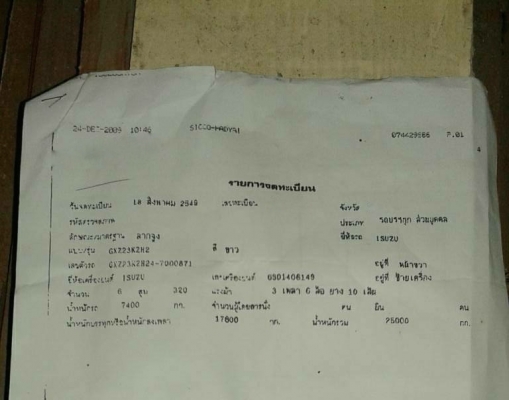 24-DEC-2009 10:46 SICCO-HADYAI 074429566 P.01
รายการจดทะเบียน
วันจดทะเบียน 18 สิงหาคม 2549 เลขทะเบียน จังหวัด
รหัสตรวจสภาพ ประเภท รถบรรทุก ส่วนบุคคล
ลักษณะ/มาตรฐาน ลากจูง ยี่ห้อรถ ISUZU
แบบ/รุ่น สี ขาว
เลขตัวรถ อยู่ที่
ยี่ห้อเครื่องยนต์ ISUZU เลขเครื่องยนต์ 6SD1406149 อยู่ที่ ซ้ายเครื่อง
จำนวน 6 สูบ 320 แรงม้า 3 เพลา 6 ล้อ ยาง 10 เส้น
น้ำหนักรถ 7400 กก. จำนวนผู้โดยสารนั่ง คน ยืน คน
น้ำหนักบรรทุกหรือน้ำหนักลงเพลา 17600 กก. น้ำหนักรวม 25000 กก.